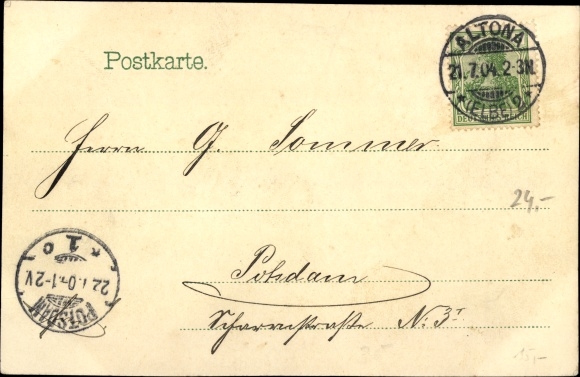 Postkarte.
ALTONA
21.7.04.2-3N.
* (ELBE) 2 *
DEUTSCHES REICH
Herrn G. Sommer
24,-
Potsdam
Scharrnstraße N: 3
POTSDAM
22.7.04.1-2V.
* 1 c
15,-